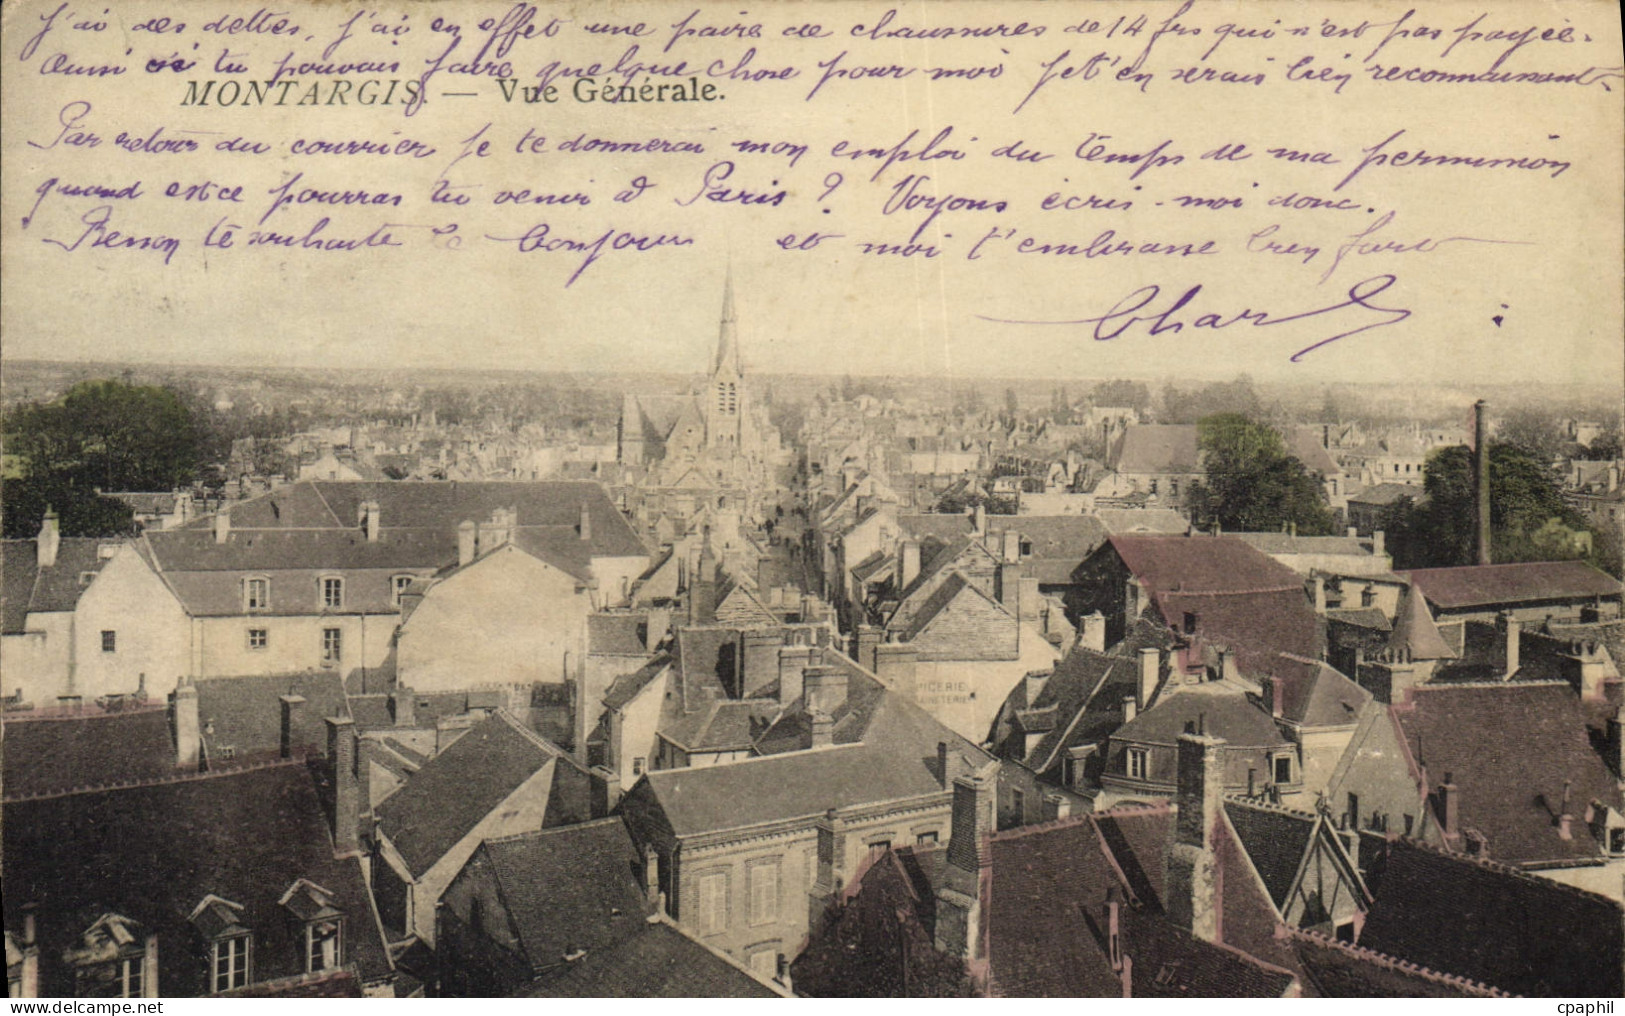 j'ai des dettes, j'ai en effet une paire de chaussures de 14 frs qui n'est pas payée.
Aussi si tu pouvais faire quelque chose pour moi je t'en serais bien reconnaissant.
MONTARGIS. — Vue Générale.
Par retour du courrier je te donnerai mon emploi du temps de ma permission
quand est ce pourras tu venir à Paris ? Voyons écris-moi donc.
te souhaite le bonjour et moi t'embrasse bien fort
Charles
PICERIE
cpaphil